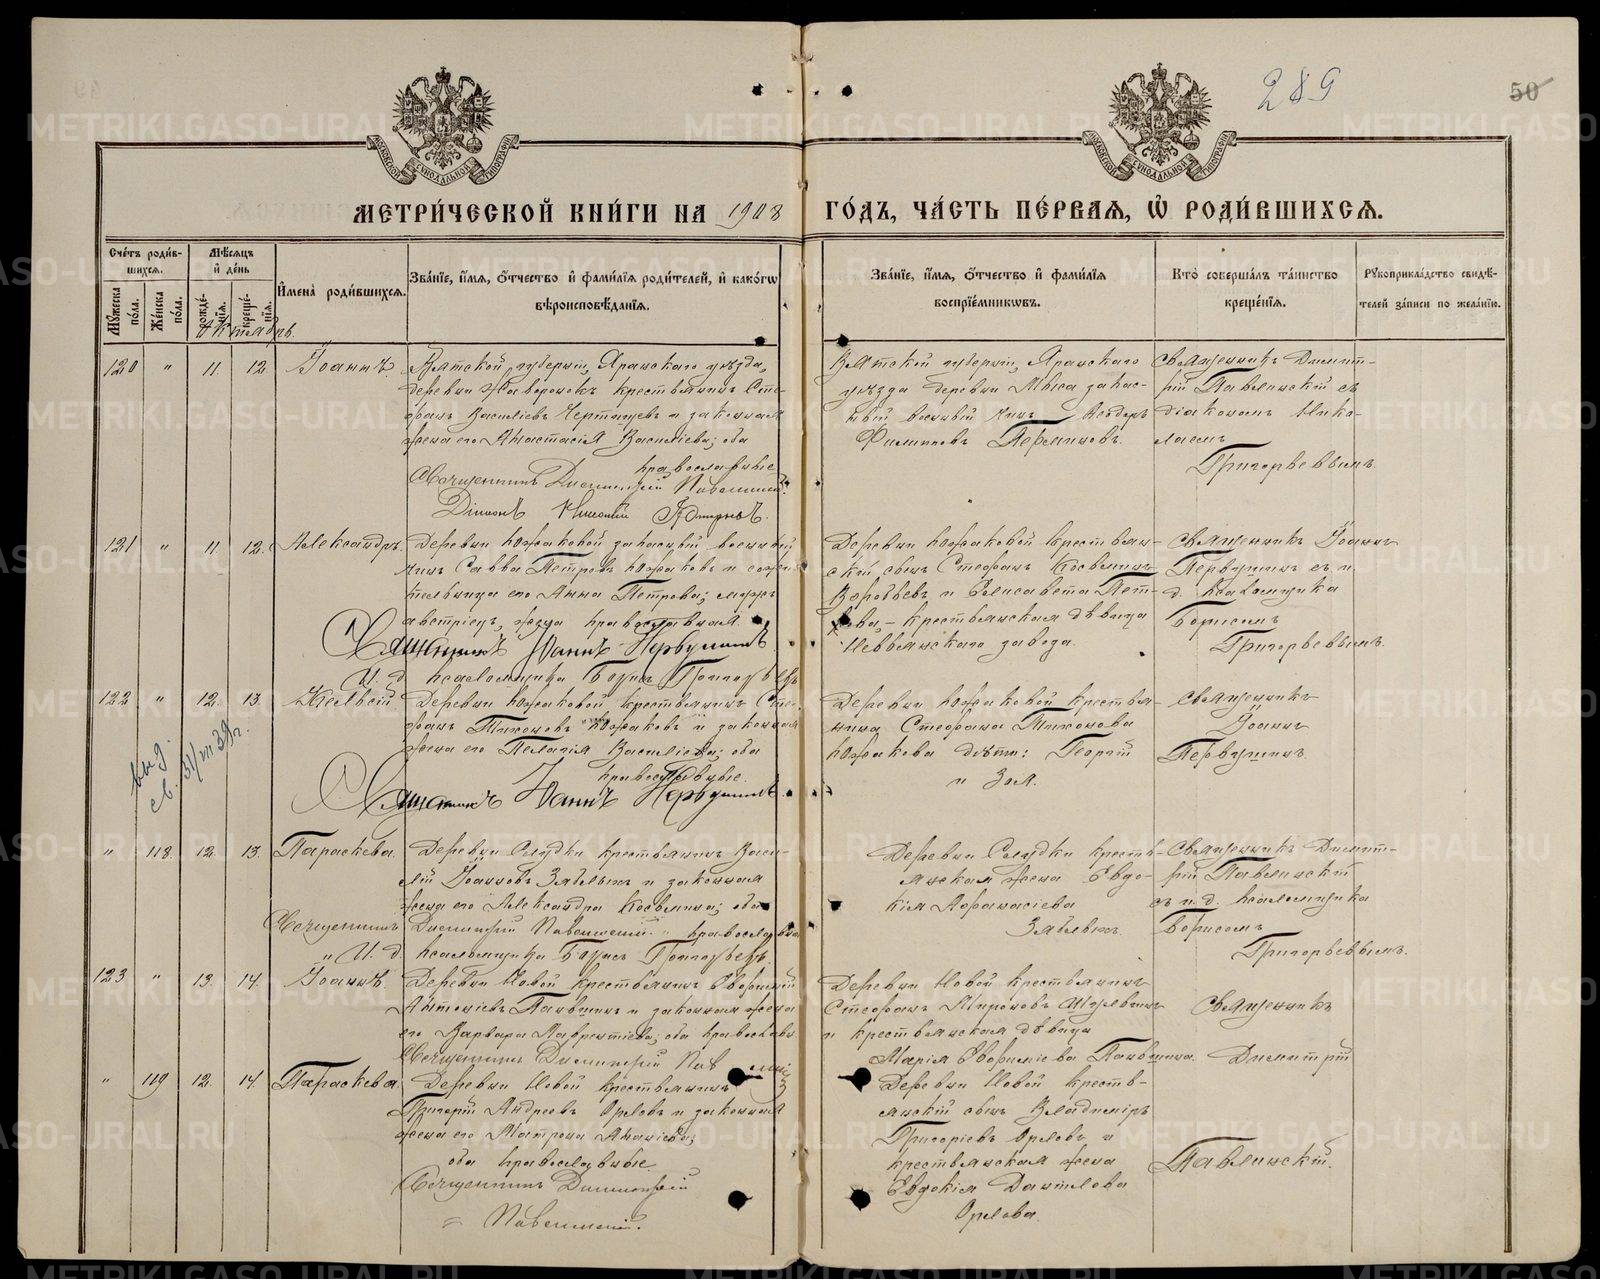 289
50
МЕТРИ́ЧЕСКОЙ КНИ́ГИ НА 1908 ГО́ДЪ, ЧА́СТЬ ПЕ́РВАЯ, Ѡ҆ РОДИ́ВШИХСѦ.
Сче́тъ роди́вшихсѧ.
Мѹ́жеска по́ла.
Же́нска по́ла.
Мѣ́сѧцъ и҆ де́нь
рожде́нїѧ.
креще́нїѧ.
И҆мена̀ роди́вшихсѧ.
Зва́нїе, и҆́мѧ, ѻ҆́тчество и҆ фами́лїѧ роди́телей, и҆ како́гѡ
вѣроисповѣ́данїѧ.
Зва́нїе, и҆́мѧ, ѻ҆́тчество и҆ фами́лїѧ
воспрїе́мникѡвъ.
Кто̀ соверша́лъ та́инство
креще́нїѧ.
Рѹкоприкла́дство свидѣ́-
телей за́писи по жела́нїю.
Октябрь.
120 " 11. 12. Іоаннъ.
Вятской губерніи, Яранскаго уѣзда,
деревни Жаворонокъ крестьянинъ Сте-
фанъ Василіевъ Чертищевъ и законная
жена его Анастасія Василіева; оба
православные.
Священникъ Димитрій Павлинскій.
Діаконъ Николай
Вятской губерніи, Яранскаго
уѣзда деревни запас-
ный военный чинъ Ѳеодоръ
Филипповъ Перминовъ.
Священникъ Димит-
рій Павлинскій съ
діакономъ Нико-
лаемъ
Григорьевымъ.
121 " 11. 12. Александръ.
Деревни Южаковой запасный военный
чинъ Савва Петровъ Южаковъ и сожи-
тельница его Анна Петрова; мужъ
австріецъ, жена православная.
Священникъ Іоаннъ Первушинъ.
И. д. псаломщика Борисъ Григорьевъ
Деревни Южаковой крестьян-
скій сынъ Стефанъ Косминъ
Воробьевъ и Елисавета Пет-
рова, - крестьянская дѣвица
Невьянскаго завода.
Священникъ Іоаннъ
Первушинъ съ и.
д. псаломщика
Борисомъ
Григорьевымъ.
122 " 12. 13.
Деревни Южаковой крестьянинъ Сте-
фанъ Тихоновъ Южаковъ и законная
жена его Пелагія Василіева; оба
православные.
Священникъ Іоаннъ Первушинъ.
Деревни Южаковой крестья-
нина Стефана Тихонова
Южакова дѣти: Георгій
и Зоя.
Священникъ
Іоаннъ
Первушинъ.
выд.
св. 31/VII 39 г.
" 118. 12. 13. Параскева.
Деревни Слудки крестьянинъ Васи-
лій Іоанновъ Зяблыхъ и законная
жена его Александра Космина; оба
православные
Священникъ Димитрій Павлинскій
И. д. псаломщика Борисъ Григорьевъ.
Деревни Слудки кресть-
янская жена Евдо-
кія Аѳанасіева
Зяблыхъ.
Священникъ Димит-
рій Павлинскій
съ и. д. псаломщика
Борисомъ
Григорьевымъ.
123 " 13. 14. Іоаннъ.
Деревни Новой крестьянинъ Евфимій
Антоніевъ Паньшинъ и законная жена
его Варвара Лаврентіева, оба православн
Священникъ Димитрій Павлинскій
Деревни Новой крестьянинъ
Стефанъ Мироновъ
и крестьянская дѣвица
Марія Евфиміева Паньшина.
Священникъ
Димитрій
" 119 12. 14. Параскева.
Деревни Новой крестьянинъ
Григорій Андреевъ Орловъ и законная
жена его Матрона Ананіева;
оба православные.
Священникъ Димитрій
Павлинскій.
Деревни Новой кресть-
янскій сынъ Владиміръ
Григоріевъ Орловъ и
крестьянская жена
Евдокія Данилова
Орлова.
Павлинскій.
METRIKI.GASO-URAL.RU